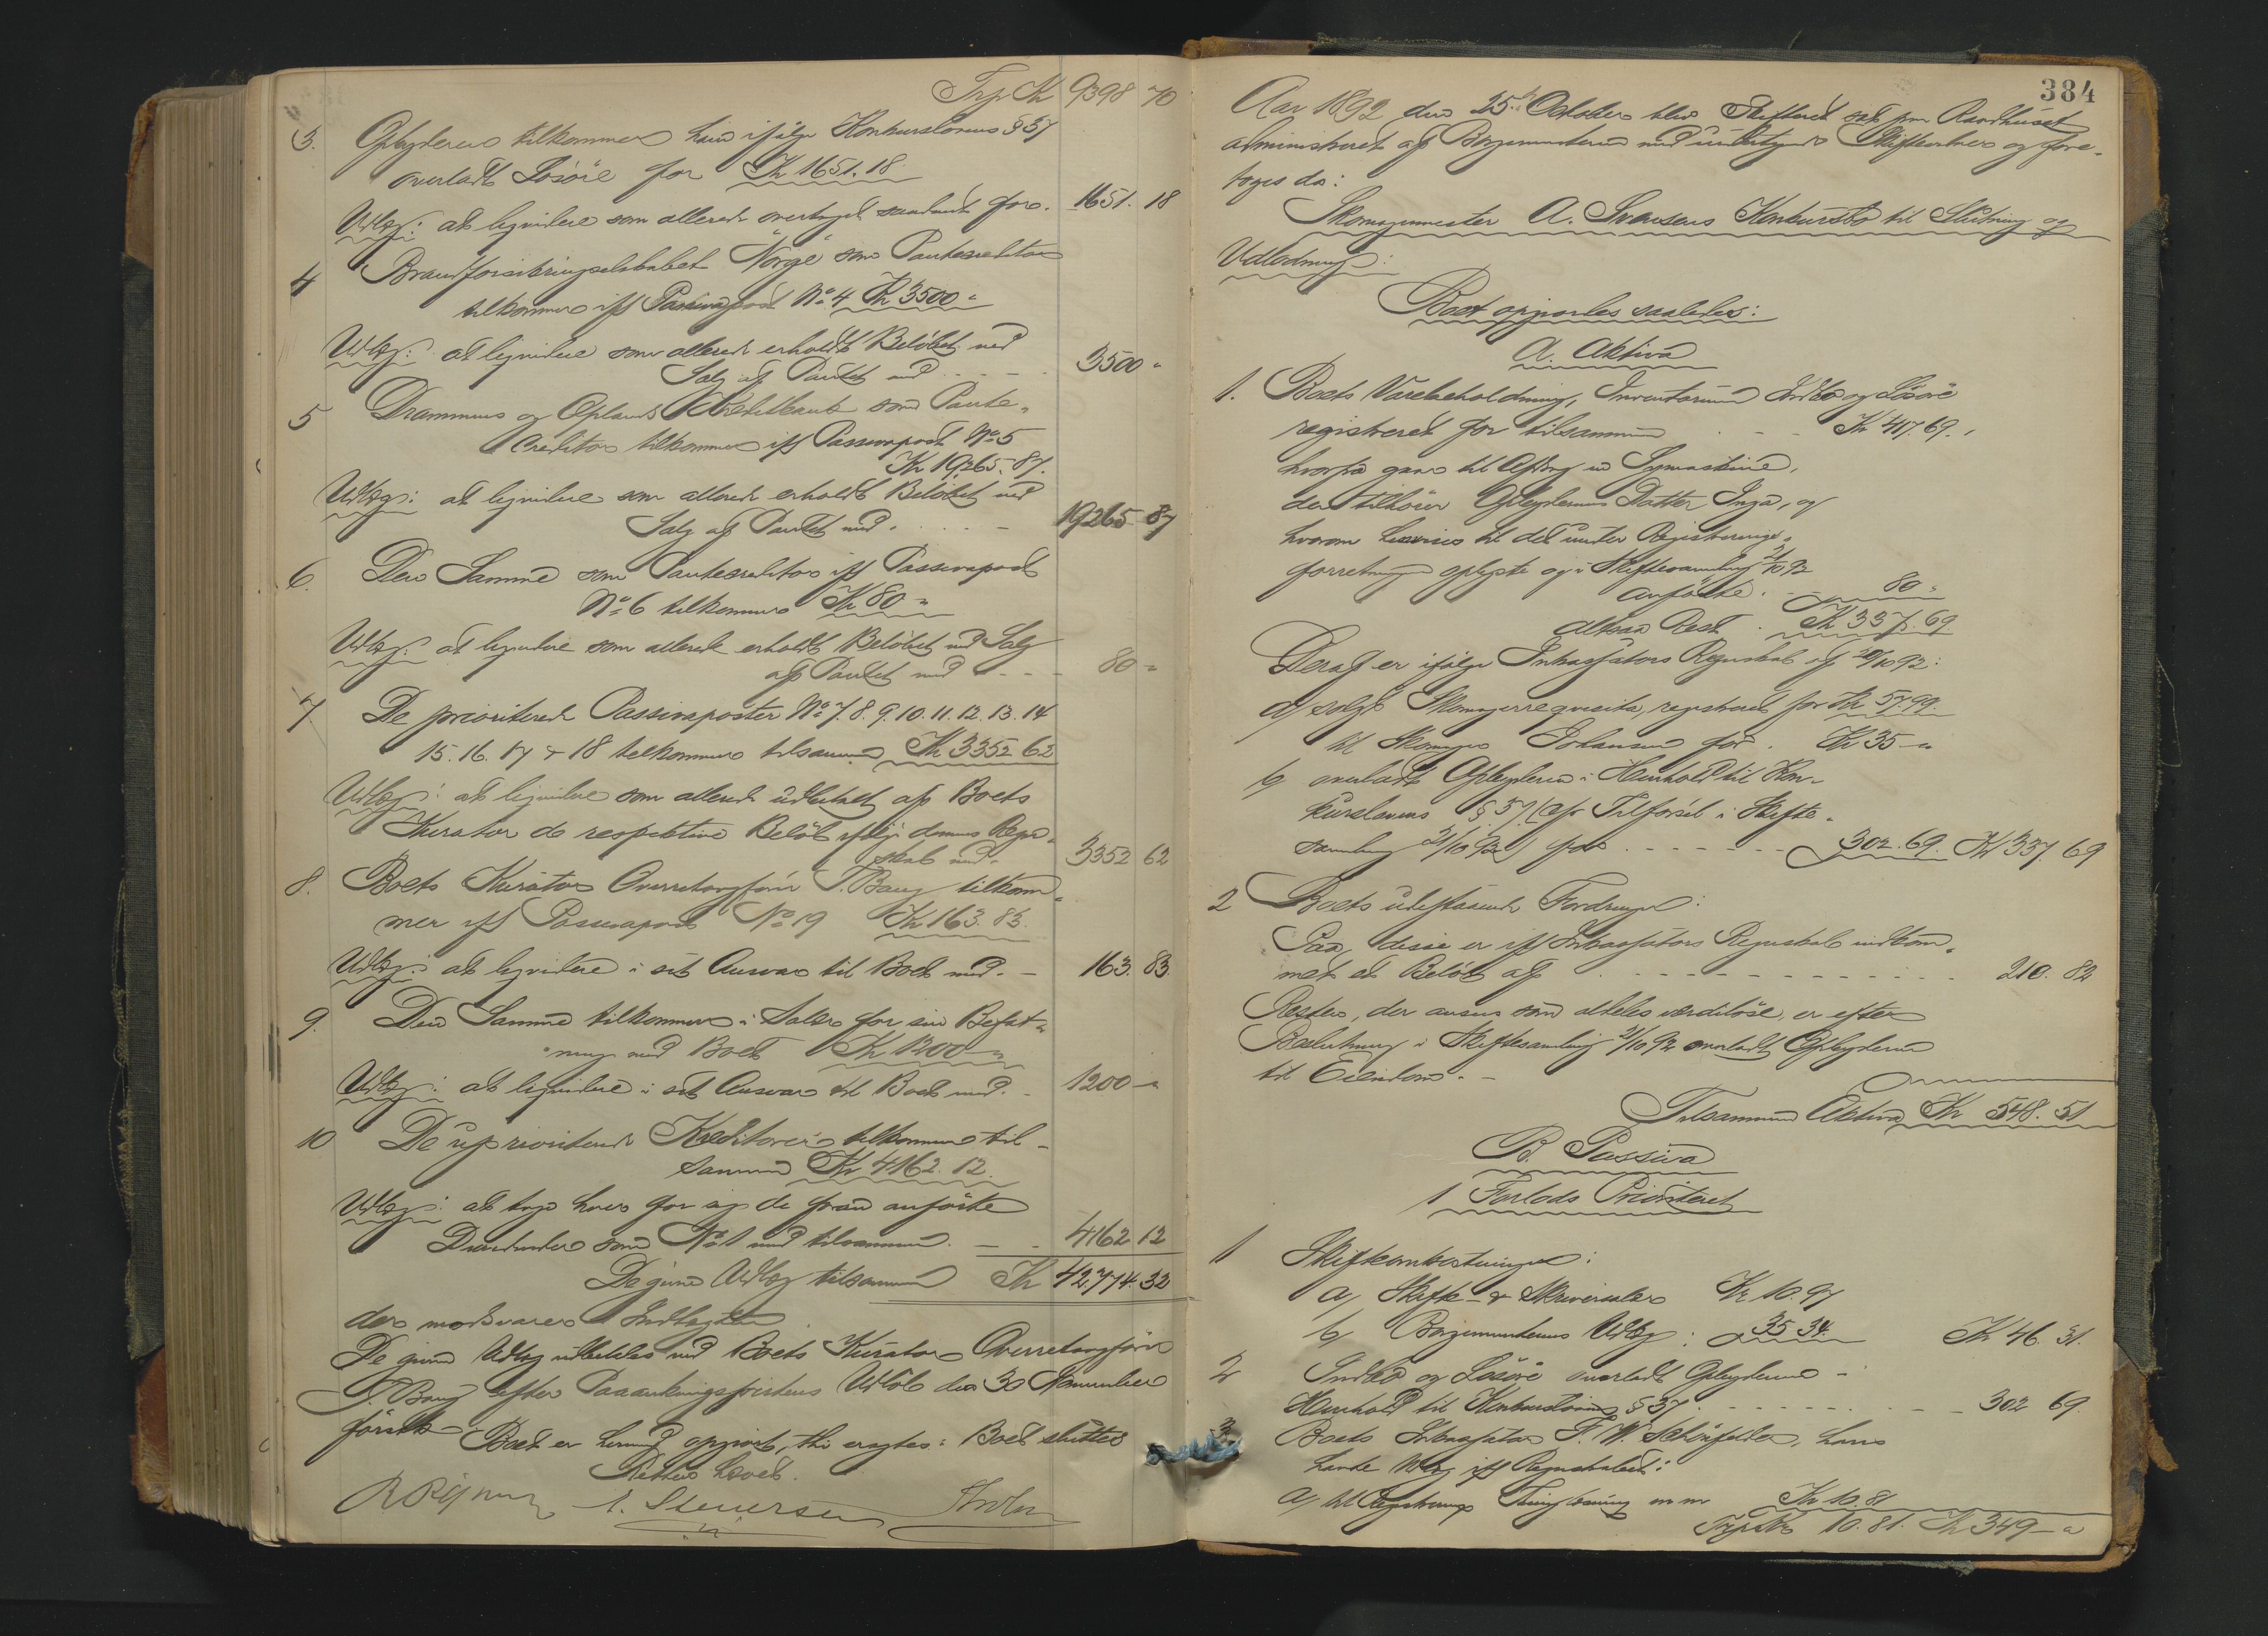 Trp Kr 9398 70
3. Opbyderen tilkommer hvad ifølge Konkurslovens § 37
overladt Løsøre for Kr 1651.18
Udlæg: at ligvidere som allerede overtaget saadant for. 1651. 18
4 Brandforsikringselskabet "Norge" som Pantecreditor
tilkommer iflg Passivapost No 4 Kr 3500 "
Udlæg: at ligvidere som allerede erholdt Beløbet ved
Salg af Pantet med - - - 3500 "
5 Drammens og Oplands Kreditbank som Pante-
creditor tilkommer iflg Passivapost No 5
Kr 19265.87.
Udlæg: at ligvidere som allerede erholdt Beløbet ved
Salg af Pantet med. - 19265 87
6. Den Samme som Pantecreditor iflg Passivapost
No 6 tilkommer Kr 80 "
Udlæg: at ligvidere som allerede erholdt Beløbet ved Salg
af Pantet med - - - 80 "
7 De prioriterede Passivaposter No 7. 8. 9. 10. 11. 12. 13. 14
15. 16. 17 & 18 tilkommer tilsammen Kr 3352 62
Udlæg: at ligvidere som allerede udbetalt af Boets
Kurator de respektive Beløb ifølge dennes Regn-
skab med - 3352 62
8. Boets Kurator Overretssagfører T. Bang tilkom-
mer iflg Passivapost No 19 Kr 163. 83.
Udlæg: at ligvidere i sit Ansvar til Boet med. - 163. 83.
9. Den Samme tilkommer i Salær for sin Befat-
ning med Boet Kr 1200 "
Udlæg: at ligvidere i sit Ansvar til Boet med. - 1200 - "
10 De uprioriterede Kreditorer tilkommer til-
sammen Kr 4162. 12.
Udlæg: at tage hver for sig de foran anførte
Dividender som No 1 med tilsammen. - - 4162 12
De givne Udlæg tilsammen Kr 42,774. 32
der modsvarer Indtægten
De givne Udlæg udbetales ved Boets Kurator Overretssagfører
T. Bang efter Paaankningsfristens Udløb den 30 November
førstk. Boet er hermed opgjort, thi eragtes: Boet sluttes
Retten hævet.
384
Aar 1892 den 25. October blev Skifteret sat paa Raadhuset
administreret af Borgermesteren med undertegnede Skiftevidner og fore-
toges da:
Skomagermester A. Svensens Konkursbo til Slutning og
Udlodning:
Boet opgjordes saaledes:
A. Aktiva
1. Boets Varebeholdning, Inventarium Indbo og Løsøre
registreret for tilsammen - - Kr 417.69.
hvorfra gaar til Afdrag en Symaskine,
der tilhører Opbyderens Datter Inga, og
hvorom henvises til det under Registrerings-
forretningen oplyste og i Skiftesamling 21/10 92
anførte. - 80 "
altsaa Rest. Kr 337. 69
Deraf er ifølge Inkassators Regnskab af 20/10 92:
a/ solgt Skomagerreqvisita, registreret for Kr 57.99.
til Skomager Johansen for. Kr 35 - "
b/ overladt Opbyderen i Henhold til Kon-
kurslovens § 37 (cfr Tilførsel i Skifte-
samling 21/10 92) for - - - - - 302. 69. Kr 337 69
2 Boets udestaaende Fordringer:
Paa disse er iflg Inkassators Regnskab indkom-
met et Beløb af - - - - - - - 210. 82
Resten, der ansees som aldeles værdiløse, er efter
Beslutning i Skiftesamling 21/10 92 overladt Opbyderen
til Eiendom. -
Tilsammen Aktiva Kr 548. 51
B. Passiva
1 Forlods Prioriteret
1 Skifteomkostninger:
a/ Skifte- & Skriversalær Kr 10.97
b/ Borgermesterens Udlæg: 35 34. Kr 46. 31.
2 Indbo og Løsøre overladt Opbyderen i
Henhold til Konkursloven § 37 - - - - - - - 302 69.
3. Boets Inkassator F. W. Schönfelder, hans
havte Udlæg iflg Regnskabet:
a/ til Registrerings Thinglæsning m m Kr 10. 81
Trpt Kr 10. 81. Kr 349 - "